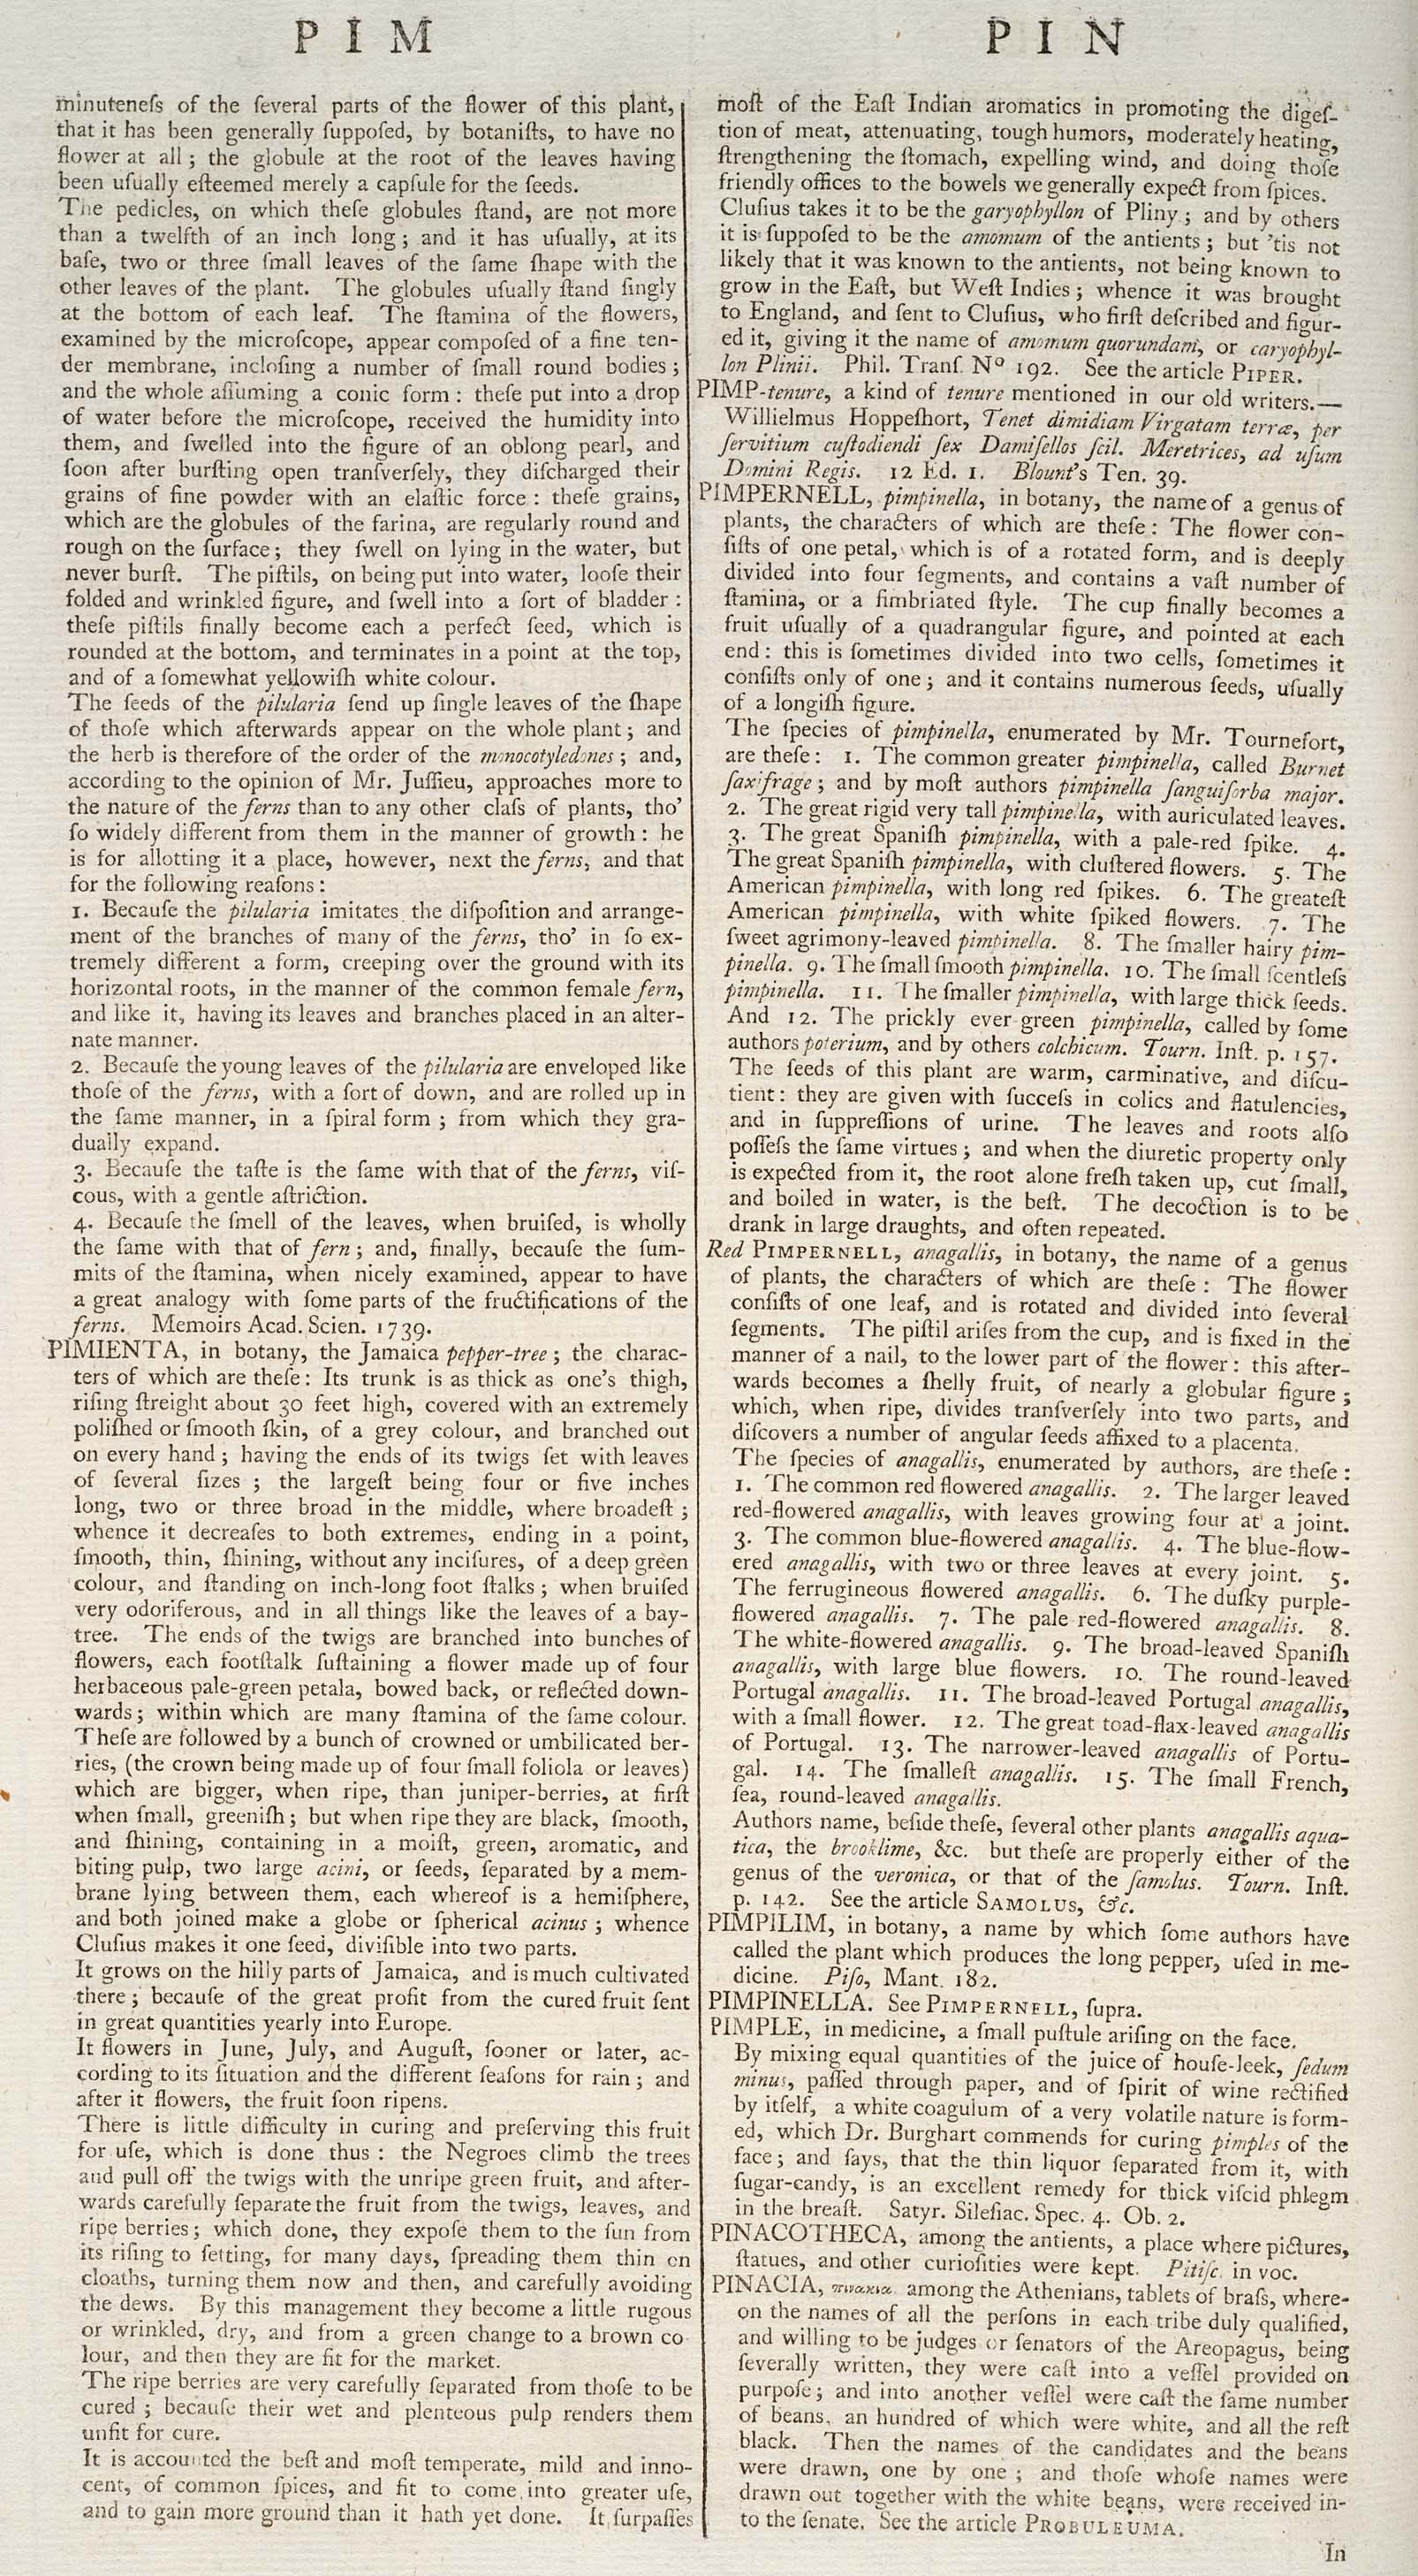 P I M
minuteneſs of the ſeveral parts of the flower of this plant,
that it has been generally ſuppoſed, by botaniſts, to have no
flower at all ; the globule at the root of the leaves having
been uſually eſteemed merely a capſule for the ſeeds.
The pedicles, on which theſe globules ſtand, are not more
than a twelfth of an inch long ; and it has uſually, at its
baſe, two or three ſmall leaves of the ſame ſhape with the
other leaves of the plant. The globules uſually ſtand ſingly
at the bottom of each leaf. The ſtamina of the flowers,
examined by the microſcope, appear compoſed of a fine ten-
der membrane, incloſing a number of ſmall round bodies ;
and the whole aſſuming a conic form : theſe put into a drop
of water before the microſcope, received the humidity into
them, and ſwelled into the figure of an oblong pearl, and
ſoon after burſting open tranſverſely, they diſcharged their
grains of fine powder with an elaſtic force : theſe grains,
which are the globules of the farina, are regularly round and
rough on the ſurface ; they ſwell on lying in the water, but
never burſt. The piſtils, on being put into water, looſe their
folded and wrinkled figure, and ſwell into a ſort of bladder :
theſe piſtils finally become each a perfect ſeed, which is
rounded at the bottom, and terminates in a point at the top,
and of a ſomewhat yellowiſh white colour.
The ſeeds of the pilularia ſend up ſingle leaves of the ſhape
of thoſe which afterwards appear on the whole plant ; and
the herb is therefore of the order of the monocotyledones ; and,
according to the opinion of Mr. Juſſieu, approaches more to
the nature of the ferns than to any other claſs of plants, tho'
ſo widely different from them in the manner of growth : he
is for allotting it a place, however, next the ferns, and that
for the following reaſons :
1. Becauſe the pilularia imitates the diſpoſition and arrange-
ment of the branches of many of the ferns, tho' in ſo ex-
tremely different a form, creeping over the ground with its
horizontal roots, in the manner of the common female fern,
and like it, having its leaves and branches placed in an alter-
nate manner.
2. Becauſe the young leaves of the pilularia are enveloped like
thoſe of the ferns, with a ſort of down, and are rolled up in
the ſame manner, in a ſpiral form ; from which they gra-
dually expand.
3. Becauſe the taſte is the ſame with that of the ferns, viſ-
cous, with a gentle aſtriction.
4. Becauſe the ſmell of the leaves, when bruiſed, is wholly
the ſame with that of fern ; and, finally, becauſe the ſum-
mits of the ſtamina, when nicely examined, appear to have
a great analogy with ſome parts of the fructifications of the
ferns. Memoirs Acad. Scien. 1739.
PIMIENTA, in botany, the Jamaica pepper-tree ; the charac-
ters of which are theſe : Its trunk is as thick as one's thigh,
riſing ſtreight about 30 feet high, covered with an extremely
poliſhed or ſmooth ſkin, of a grey colour, and branched out
on every hand ; having the ends of its twigs ſet with leaves
of ſeveral ſizes ; the largeſt being four or five inches
long, two or three broad in the middle, where broadeſt ;
whence it decreaſes to both extremes, ending in a point,
ſmooth, thin, ſhining, without any inciſures, of a deep green
colour, and ſtanding on inch-long foot ſtalks ; when bruiſed
very odoriferous, and in all things like the leaves of a bay-
tree. The ends of the twigs are branched into bunches of
flowers, each footſtalk ſuſtaining a flower made up of four
herbaceous pale-green petala, bowed back, or reflected down-
wards ; within which are many ſtamina of the ſame colour.
Theſe are followed by a bunch of crowned or umbilicated ber-
ries, (the crown being made up of four ſmall foliola or leaves)
which are bigger, when ripe, than juniper-berries, at firſt
when ſmall, greeniſh ; but when ripe they are black, ſmooth,
and ſhining, containing in a moiſt, green, aromatic, and
biting pulp, two large acini, or ſeeds, ſeparated by a mem-
brane lying between them, each whereof is a hemiſphere,
and both joined make a globe or ſpherical acinus ; whence
Cluſius makes it one ſeed, diviſible into two parts.
It grows on the hilly parts of Jamaica, and is much cultivated
there ; becauſe of the great profit from the cured fruit ſent
in great quantities yearly into Europe.
It flowers in June, July, and Auguſt, ſooner or later, ac-
cording to its ſituation and the different ſeaſons for rain ; and
after it flowers, the fruit ſoon ripens.
There is little difficulty in curing and preſerving this fruit
for uſe, which is done thus : the Negroes climb the trees
and pull off the twigs with the unripe green fruit, and after-
wards carefully ſeparate the fruit from the twigs, leaves, and
ripe berries ; which done, they expoſe them to the ſun from
its riſing to ſetting, for many days, ſpreading them thin on
cloaths, turning them now and then, and carefully avoiding
the dews. By this management they become a little rugous
or wrinkled, dry, and from a green change to a brown co
lour, and then they are fit for the market.
The ripe berries are very carefully ſeparated from thoſe to be
cured ; becauſe their wet and plenteous pulp renders them
unfit for cure.
It is accounted the beſt and moſt temperate, mild and inno-
cent, of common ſpices, and fit to come into greater uſe,
and to gain more ground than it hath yet done. It ſurpaſſes
P I N
moſt of the Eaſt Indian aromatics in promoting the digeſ-
tion of meat, attenuating, tough humors, moderately heating,
ſtrengthening the ſtomach, expelling wind, and doing thoſe
friendly offices to the bowels we generally expect from ſpices.
Cluſius takes it to be the garyophyllon of Pliny ; and by others
it is ſuppoſed to be the amomum of the antients ; but 'tis not
likely that it was known to the antients, not being known to
grow in the Eaſt, but Weſt Indies ; whence it was brought
to England, and ſent to Cluſius, who firſt deſcribed and figur-
ed it, giving it the name of amomum quorundam, or caryophyl-
lon Plinii. Phil. Tranſ. Nº 192. See the article PIPER.
PIMP-tenure, a kind of tenure mentioned in our old writers.—
Willielmus Hoppeſhort, Tenet dimidiam Virgatam terræ, per
ſervitium cuſtodiendi ſex Damiſellos ſcil. Meretrices, ad uſum
Domini Regis. 12 Ed. 1. Blount's Ten. 39.
PIMPERNELL, pimpinella, in botany, the name of a genus of
plants, the characters of which are theſe : The flower con-
ſiſts of one petal, which is of a rotated form, and is deeply
divided into four ſegments, and contains a vaſt number of
ſtamina, or a fimbriated ſtyle. The cup finally becomes a
fruit uſually of a quadrangular figure, and pointed at each
end : this is ſometimes divided into two cells, ſometimes it
conſiſts only of one ; and it contains numerous ſeeds, uſually
of a longiſh figure.
The ſpecies of pimpinella, enumerated by Mr. Tournefort,
are theſe : 1. The common greater pimpinella, called Burnet
ſaxifrage ; and by moſt authors pimpinella ſanguiſorba major.
2. The great rigid very tall pimpinella, with auriculated leaves.
3. The great Spaniſh pimpinella, with a pale-red ſpike. 4.
The great Spaniſh pimpinella, with cluſtered flowers. 5. The
American pimpinella, with long red ſpikes. 6. The greateſt
American pimpinella, with white ſpiked flowers. 7. The
ſweet agrimony-leaved pimpinella. 8. The ſmaller hairy pim-
pinella. 9. The ſmall ſmooth pimpinella. 10. The ſmall ſcentleſs
pimpinella. 11. The ſmaller pimpinella, with large thick ſeeds.
And 12. The prickly ever-green pimpinella, called by ſome
authors poterium, and by others colchicum. Tourn. Inſt. p. 157.
The ſeeds of this plant are warm, carminative, and diſcu-
tient : they are given with ſucceſs in colics and flatulencies,
and in ſuppreſſions of urine. The leaves and roots alſo
poſſeſs the ſame virtues ; and when the diuretic property only
is expected from it, the root alone freſh taken up, cut ſmall,
and boiled in water, is the beſt. The decoction is to be
drank in large draughts, and often repeated.
Red PIMPERNELL, anagallis, in botany, the name of a genus
of plants, the characters of which are theſe : The flower
conſiſts of one leaf, and is rotated and divided into ſeveral
ſegments. The piſtil ariſes from the cup, and is fixed in the
manner of a nail, to the lower part of the flower : this after-
wards becomes a ſhelly fruit, of nearly a globular figure ;
which, when ripe, divides tranſverſely into two parts, and
diſcovers a number of angular ſeeds affixed to a placenta.
The ſpecies of anagallis, enumerated by authors, are theſe :
1. The common red flowered anagallis. 2. The larger leaved
red-flowered anagallis, with leaves growing four at a joint.
3. The common blue-flowered anagallis. 4. The blue-flow-
ered anagallis, with two or three leaves at every joint. 5.
The ferrugineous flowered anagallis. 6. The duſky purple-
flowered anagallis. 7. The pale red-flowered anagallis. 8.
The white-flowered anagallis. 9. The broad-leaved Spaniſh
anagallis, with large blue flowers. 10. The round-leaved
Portugal anagallis. 11. The broad-leaved Portugal anagallis,
with a ſmall flower. 12. The great toad-flax-leaved anagallis
of Portugal. 13. The narrower-leaved anagallis of Portu-
gal. 14. The ſmalleſt anagallis. 15. The ſmall French,
ſea, round-leaved anagallis.
Authors name, beſide theſe, ſeveral other plants anagallis aqua-
tica, the brooklime, &c. but theſe are properly either of the
genus of the veronica, or that of the ſamolus. Tourn. Inſt.
p. 142. See the article SAMOLUS, &c.
PIMPILIM, in botany, a name by which ſome authors have
called the plant which produces the long pepper, uſed in me-
dicine. Piſo, Mant. 182.
PIMPINELLA. See PIMPERNELL, ſupra.
PIMPLE, in medicine, a ſmall puſtule ariſing on the face.
By mixing equal quantities of the juice of houſe-leek, ſedum
minus, paſſed through paper, and of ſpirit of wine rectified
by itſelf, a white coagulum of a very volatile nature is form-
ed, which Dr. Burghart commends for curing pimples of the
face ; and ſays, that the thin liquor ſeparated from it, with
ſugar-candy, is an excellent remedy for thick viſcid phlegm
in the breaſt. Satyr. Sileſiac. Spec. 4. Ob. 2.
PINACOTHECA, among the antients, a place where pictures,
ſtatues, and other curioſities were kept. Pitiſc. in voc.
PINACIA, πινακια among the Athenians, tablets of braſs, where-
on the names of all the perſons in each tribe duly qualified,
and willing to be judges or ſenators of the Areopagus, being
ſeverally written, they were caſt into a veſſel provided on
purpoſe ; and into another veſſel were caſt the ſame number
of beans, an hundred of which were white, and all the reſt
black. Then the names of the candidates and the beans
were drawn, one by one ; and thoſe whoſe names were
drawn out together with the white beans, were received in-
to the ſenate. See the article PROBULEUMA.
In